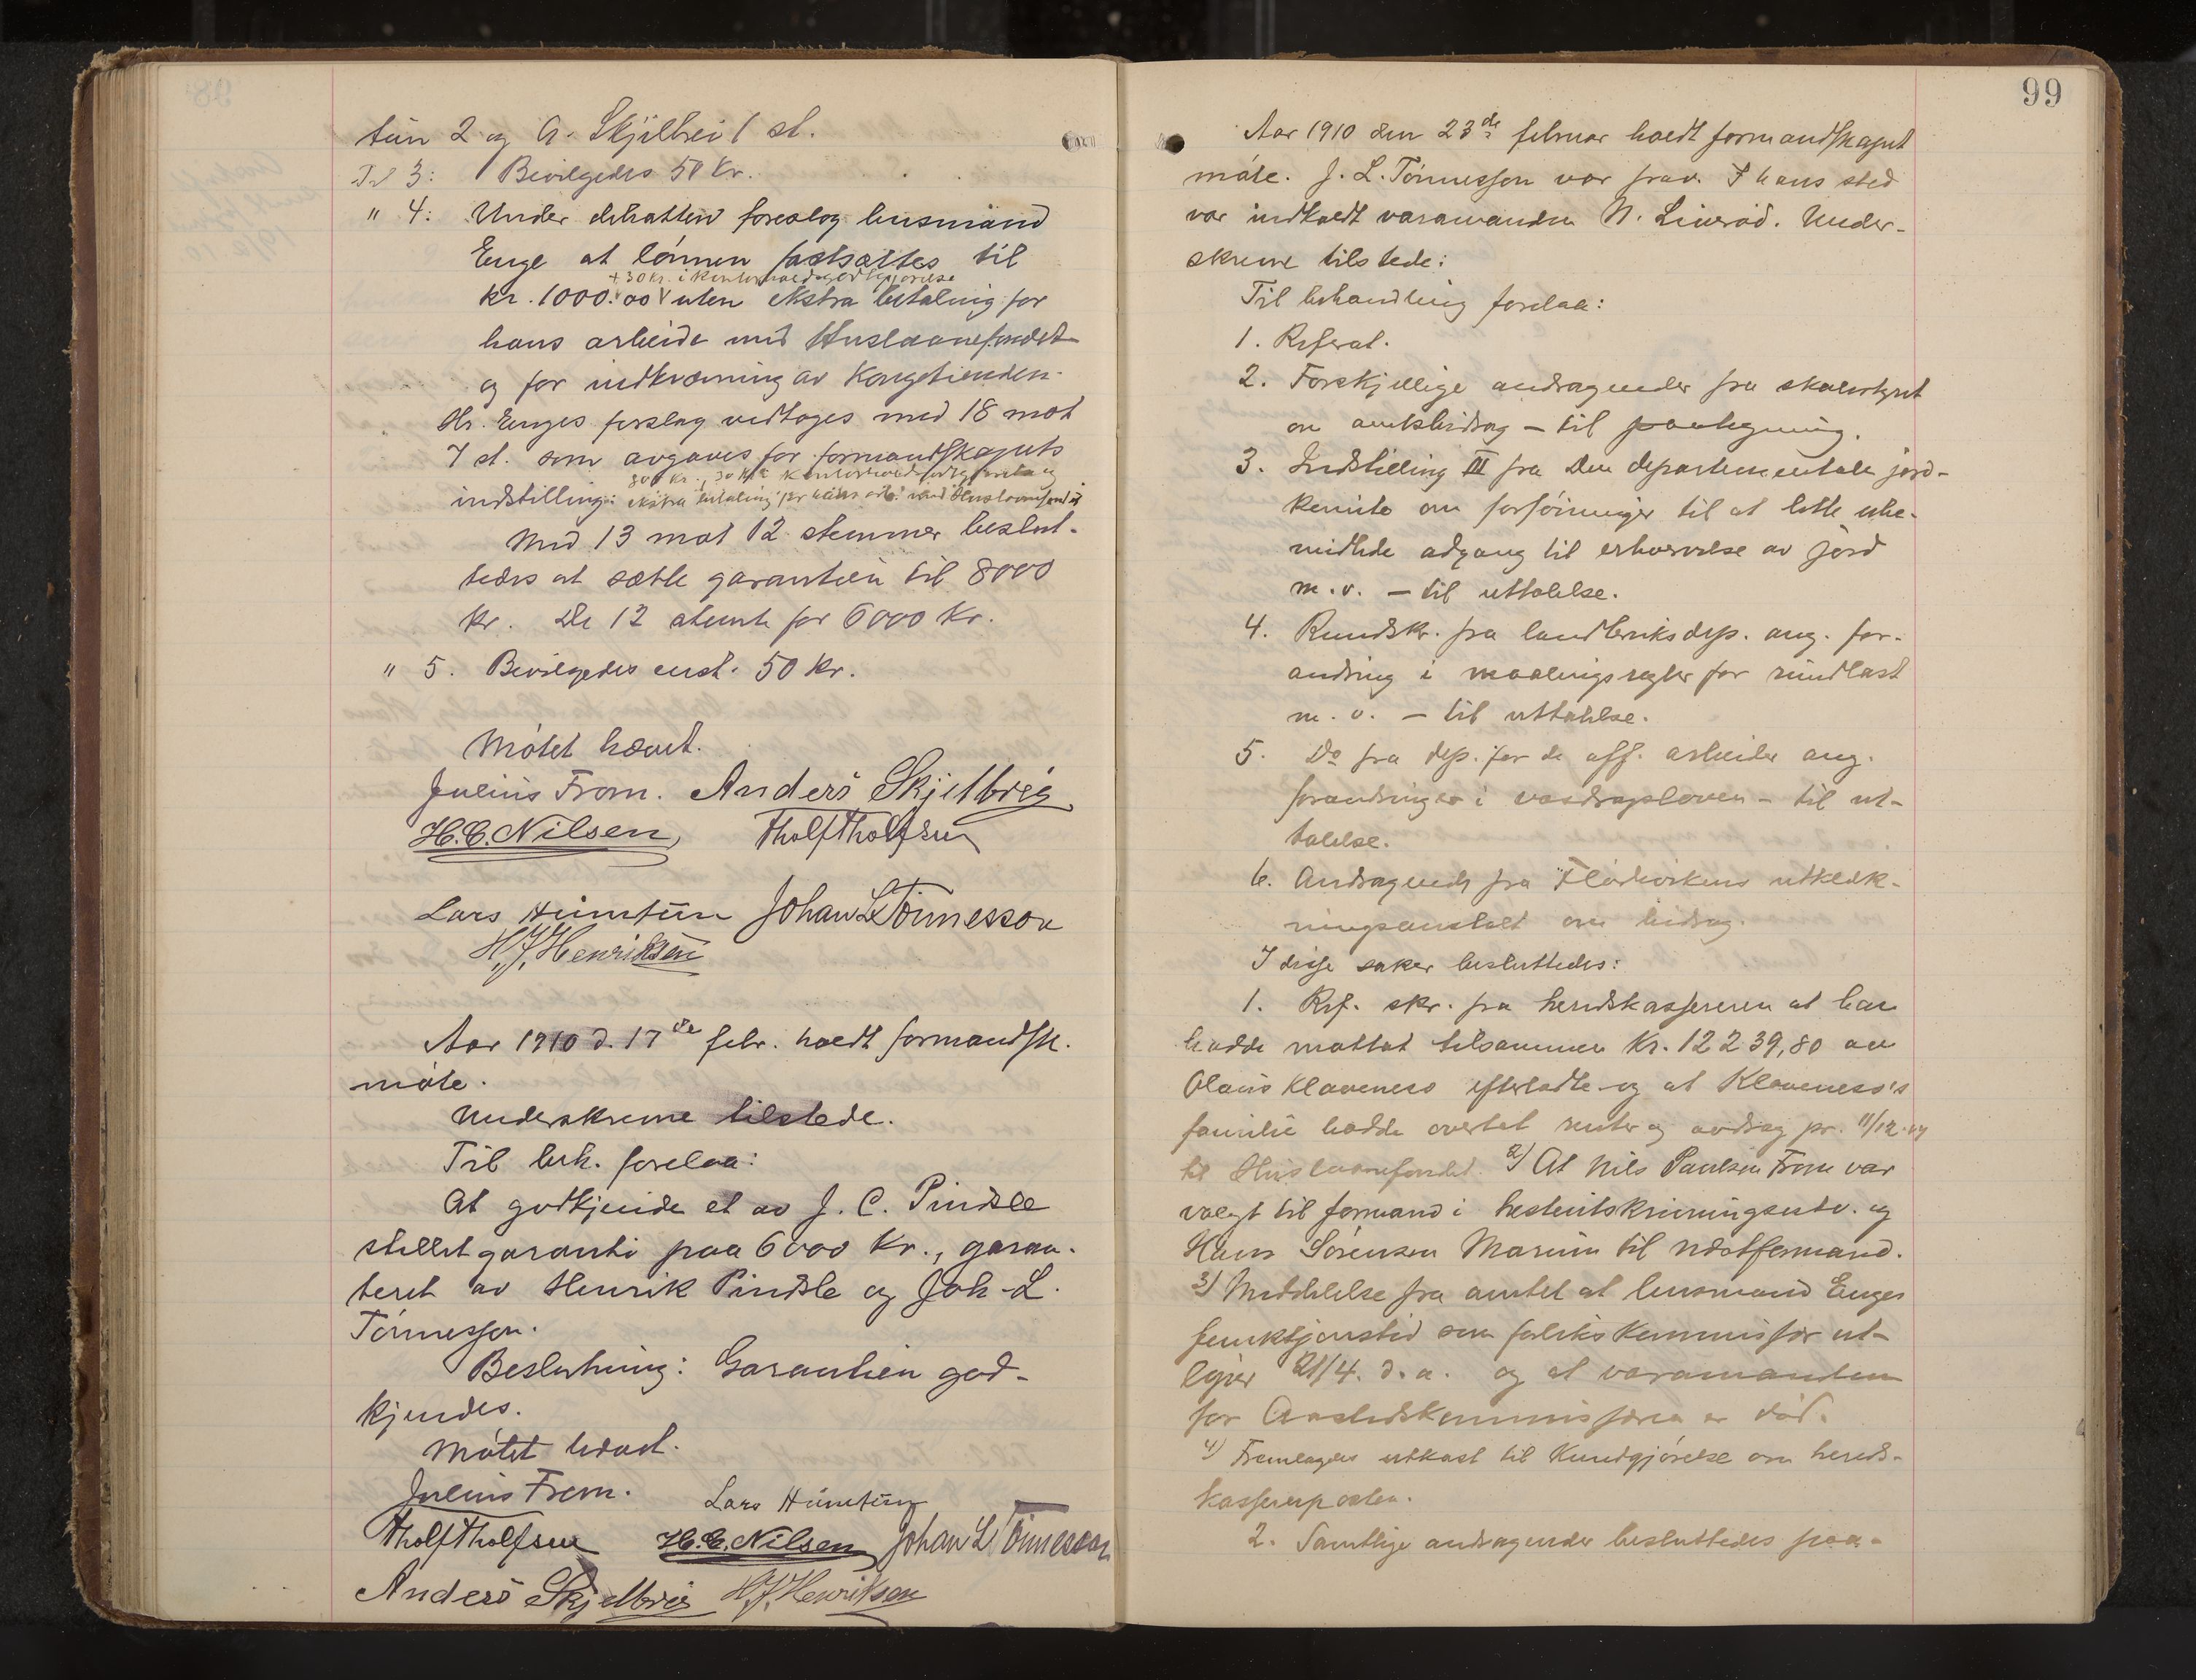 tün 2 og A. Skjelbrei 1 st.
Til 3: Bevilgedes 50 kr.
" 4: Under debatten foreslog lensmand
Enge at lønnen fastsattes til
+ 30 kr. i kontorholdsgodtgjørelse
kr. 1000.00 uten ekstra betaling for
hans arbeide med Huslaanefondet
og for indkrævning av Kongetienden.
Hr. Enges forslag vedtages med 18 mot
7 st. som avgaves for formandskapets
800 kr., 30 kr. kontorholdsgodtgjørelse og
indstilling: ekstra betaling for hans arb. med Huslaanefondet
Med 13 mot 12 stemmer beslut-
tedes at sætte garantien til 8000
kr. De 12 stemte for 6000 kr.
" 5. Bevilgedes enst. 50 kr.
Møtet hævet.
Julius From. Anders Skjelbrei
H. C. Nilsen, Tholf Tholfsen
Lars Himtün Johan L Tönnesson
H. J. Henriksen
Aar 1910 d. 17de febr. holdt formandsk.
møte.
Underskrevne tilstede.
Til beh. forelaa:
At godkjende et av J. C. Pindsle
stillet garanti paa 6000 kr., garan-
teret av Henrik Pindsle og Joh. L.
Tönnessen.
Beslutning: Garantien god-
kjendes.
Møtet hævet.
Julius From. Lars Himtün
Tholf Tholfsen H. C. Nilsen Johan L Tönnesson
Anders Skjelbrei H. J. Henriksen
99
Aar 1910 den 23de februar holdt formandskapet
møte. J. L. Tönnessen var frav. I hans sted
var indkaldt varamanden N. Liverød. Under-
skrevne tilstede:
Til behandling forelaa:
1. Referat.
2. Forskjellige andragender fra skolestyret
om amtsbidrag – til paategning.
3. Indstilling III fra Den departementale jord-
komite om forføininger til at lette ube-
midlede adgang til erhvervelse av jord
m.v. – til uttalelse.
4. Rundskr. fra landbruksdep. ang. for-
andring i maalingsregler for rundlast
m.v. – til uttalelse.
5. Do fra dep. for de off. arbeider ang.
forandringer i vasdragsloven – til ut-
talelse.
6. Andragende fra Flødevikens utklæk-
ningsanstalt om bidrag.
I disse saker besluttedes:
1. Ref. skr. fra herredskassereren at han
hadde mottat tilsammen kr. 12239,80 av
Olaus Klaveness efterladte og at Klaveness's
familie hadde overtat renter og avdrag pr. 11/12.09
til Huslaanefondet. 2) At Nils Paulsen From var
valgt til formand i hesteutskrivningsutv. og
Hans Sörensen Marum til næstformand.
3) Meddelelse fra amtet at lensmand Enges
funktjonstid som politikommissær ut-
løper 21/4. d.a. og at varamanden
for Aastedskommissæren er død.
4) Fremlagdes utkast til kundgjørelse om hereds-
kassererposten.
2. Samtlige andragender besluttedes paa-